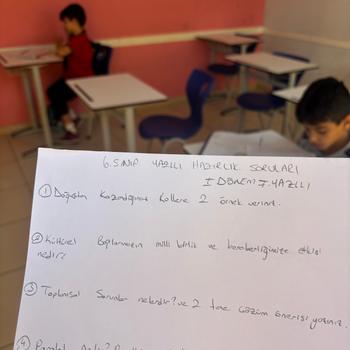 6. SINIF YAZILI HAZIRLIK SORULARI
I DÖNEM I. YAZILI
① Doğuştan Kazandığımız Rollere 2 örnek veriniz.
② Kültürel Bağlarımızın milli birlik ve beraberliğimize etkisi
nedir?
③ Toplumsal Sorunlar nelerdir? ve 2 tane çözüm önerisi yazınız.
④